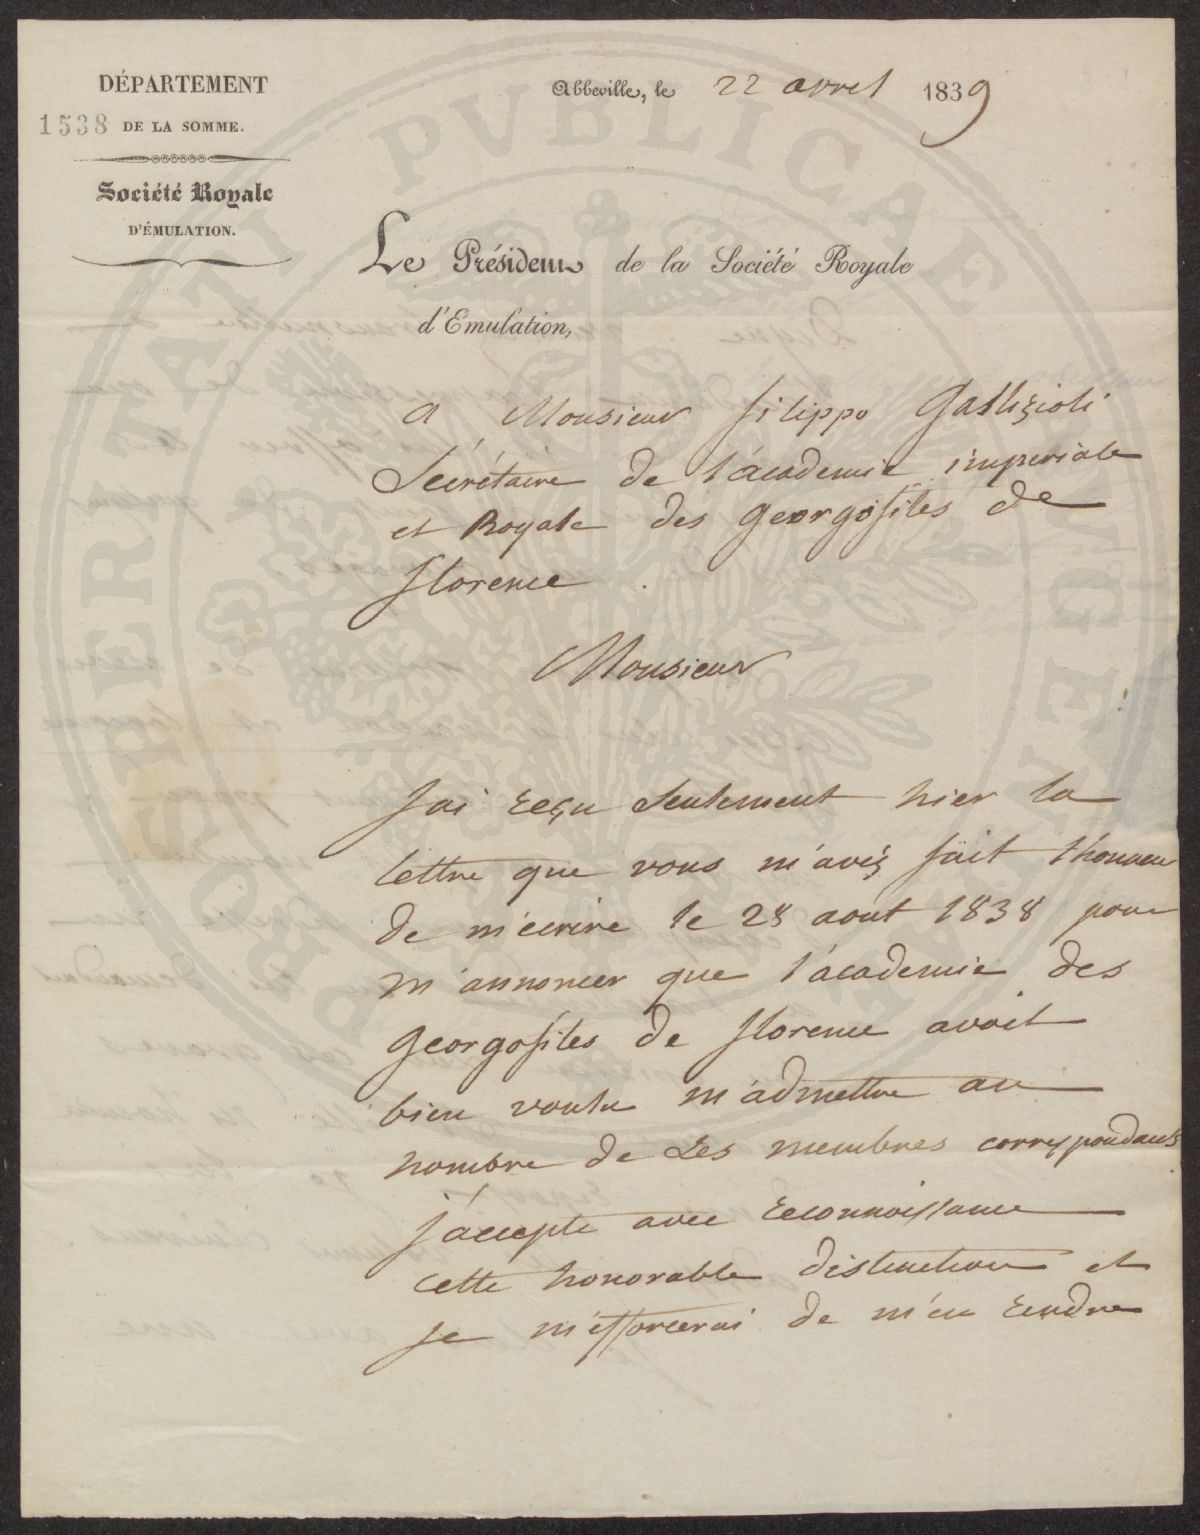 DÉPARTEMENT
1538 DE LA SOMME.
Société Royale
D'ÉMULATION.
Abbeville, le 22 avril 1839
Le Président de la Société Royale
d'Emulation,
a Monsieur filippo Gallizioli
Secrétaire de l'académie impériale
et Royale des georgofiles de
florence .
Monsieur
J'ai reçu Seulement hier la
lettre que vous m'avéz fait l'honneur
de m'ecrire le 28 aout 1838 pour
m'annoncer que l'academie des
georgofiles de florence avoit
bien voulu m'admettre au
nombre de Ses membres correspondants
j'accepte avec reconnoissance
cette honorable distinction et
je m'efforcerai de m'en rendre
PROSPERITATI PVBLICAE AVGENDAE